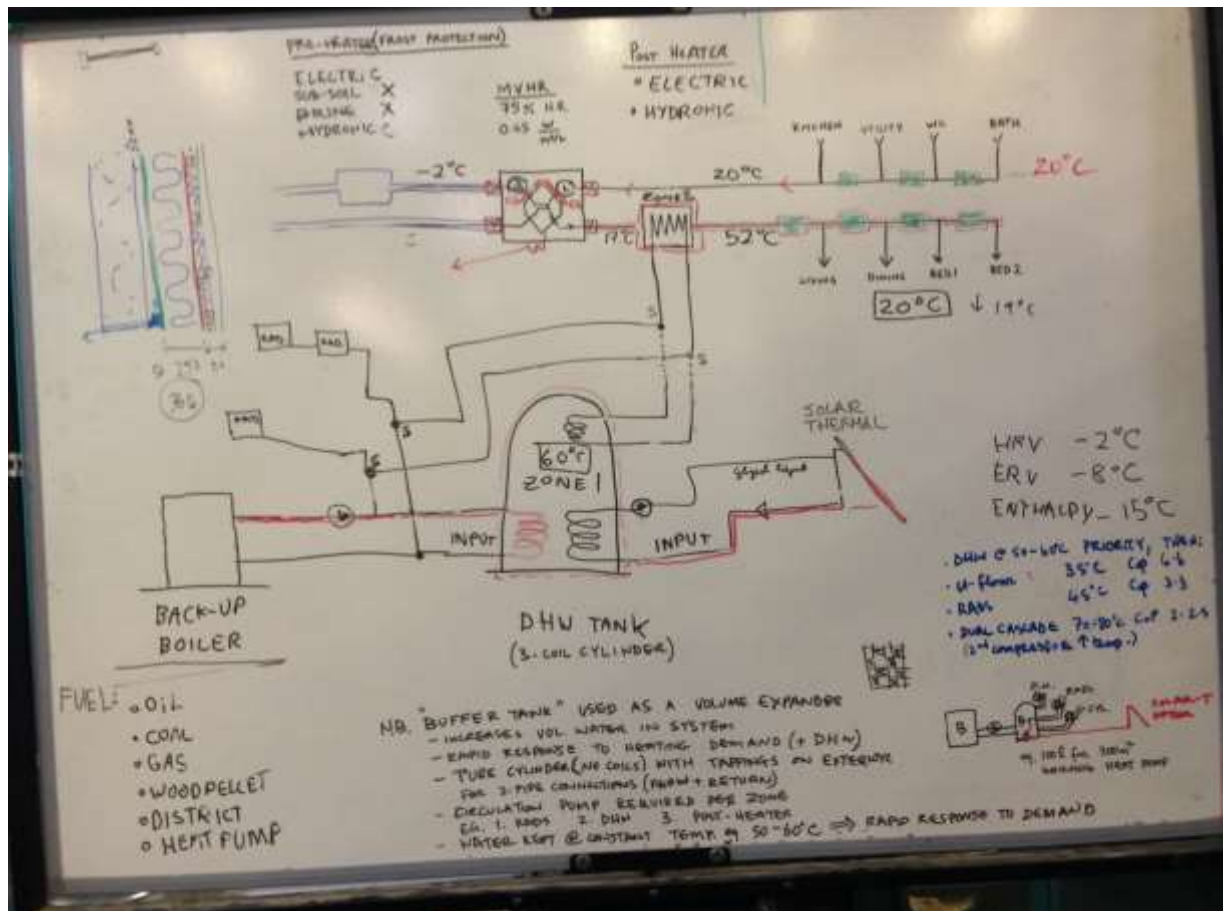 PRE-HEATER (FROST PROTECTION)
ELECTRIC
SUB-SOIL X
X
HYDRONIC
MVHR
75% HR
0.45 W
POST HEATER
• ELECTRIC
• HYDRONIC
KITCHEN UTILITY WC BATH
-2°C
20°C
20°C
ZONE 2
17°C
52°C
LIVING DINING BED 1 BED 2
20°C ↓ 19°C
S
S
RAD RAD
RAD
S
S
60°C
ZONE 1
SOLAR
THERMAL
INPUT
INPUT
BACK-UP
BOILER
DHW TANK
(3-COIL CYLINDER)
HRV -2°C
ERV -8°C
ENTHALPY -15°C
• DHW @ 50-60°C PRIORITY, THEN:
• U-floor 35°C
• RADS 45°C
• DUAL CASCADE 70-80°C CoP 2-2.5
(2nd COMPRESSOR ↑ temp.)
FUEL:
• OIL
• COAL
• GAS
• WOODPELLET
• DISTRICT
• HEAT PUMP
NB. "BUFFER TANK" USED AS A VOLUME EXPANDER
- INCREASES VOL WATER IN SYSTEM
- RAPID RESPONSE TO HEATING DEMAND (+ DHW)
- TUBE CYLINDER (NO COILS) WITH TAPPINGS ON EXTERIOR
FOR 2-PIPE CONNECTIONS (FLOW + RETURN)
- CIRCULATION PUMP REQUIRED PER ZONE
EG. 1. RADS 2. DHW 3. POST-HEATER
- WATER KEPT @ CONSTANT TEMP eg 50-60°C ⇒ RAPID RESPONSE TO DEMAND
B
HEAT PUMP